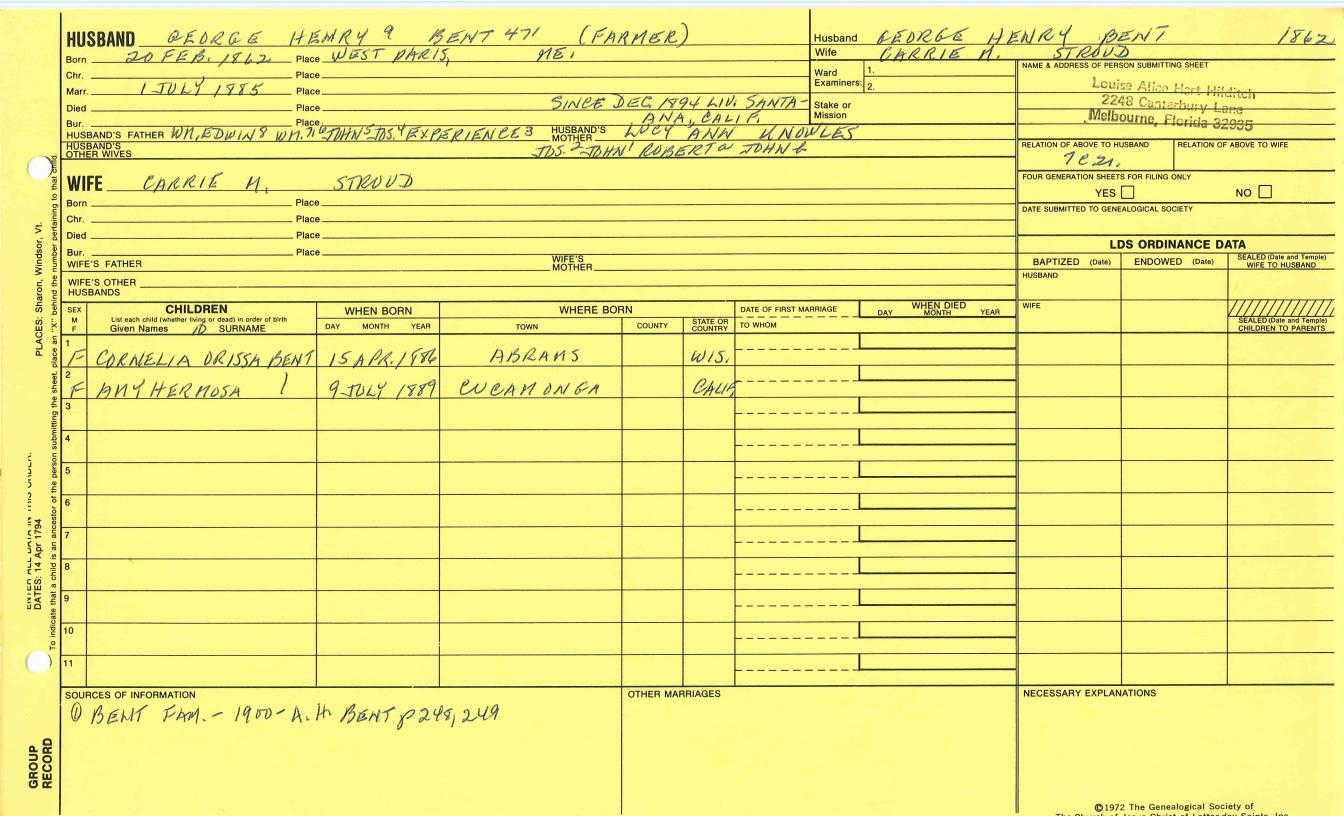 HUSBAND GEORGE HENRY 9 BENT 471 (FARMER)
Born 20 FEB. 1862 Place WEST PARIS, ME.
Chr. Place
Marr. 1 JULY 1885 Place
Died Place SINCE DEC 1894 LIV. SANTA-
Bur. Place ANA, CALIF.
HUSBAND'S FATHER WM. EDWIN 8 WM. 7 JOHN 5 JOS. 4 EXPERIENCE 3 HUSBAND'S MOTHER LUCY ANN KNOWLES
HUSBAND'S OTHER WIVES JOS. 2 JOHN 1 ROBERT a JOHN b
Husband GEORGE HENRY BENT 1862
Wife CARRIE M. STROUD
Ward Examiners: 1.
2.
Stake or Mission
NAME & ADDRESS OF PERSON SUBMITTING SHEET
Louise Alice Hart Hilditch
2248 Canterbury Lane
Melbourne, Florida 32935
RELATION OF ABOVE TO HUSBAND RELATION OF ABOVE TO WIFE
7c2r.
FOUR GENERATION SHEETS FOR FILING ONLY
YES NO
DATE SUBMITTED TO GENEALOGICAL SOCIETY
WIFE CARRIE M. STROUD
Born Place
Chr. Place
Died Place
Bur. Place
WIFE'S FATHER WIFE'S MOTHER
WIFE'S OTHER HUSBANDS
LDS ORDINANCE DATA
BAPTIZED (Date) ENDOWED (Date) SEALED (Date and Temple) WIFE TO HUSBAND
HUSBAND
WIFE
SEALED (Date and Temple) CHILDREN TO PARENTS
SEX M F CHILDREN WHEN BORN WHERE BORN DATE OF FIRST MARRIAGE WHEN DIED
List each child (whether living or dead) in order of birth
Given Names 10 SURNAME DAY MONTH YEAR TOWN COUNTY STATE OR COUNTRY TO WHOM DAY MONTH YEAR
1 F CORNELIA ORISSA BENT 15 APR. 1886 ABRAMS WIS.
2 F AMY HERMOSA 9 JULY 1889 CUCAMONGA CALIF.
3
4
5
6
7
8
9
10
11
SOURCES OF INFORMATION
① BENT FAM. - 1900 - A.H. BENT p 248, 249
OTHER MARRIAGES
NECESSARY EXPLANATIONS
©1972 The Genealogical Society of
The Church of Jesus Christ of Latter-day Saints, Inc.
PLACES: Sharon, Windsor, Vt.
ENTER ALL DATA IN THIS ORDER:
DATES: 14 Apr 1794
To indicate that a child is an ancestor of the person submitting the sheet, place an "X" behind the number pertaining to that child
GROUP RECORD